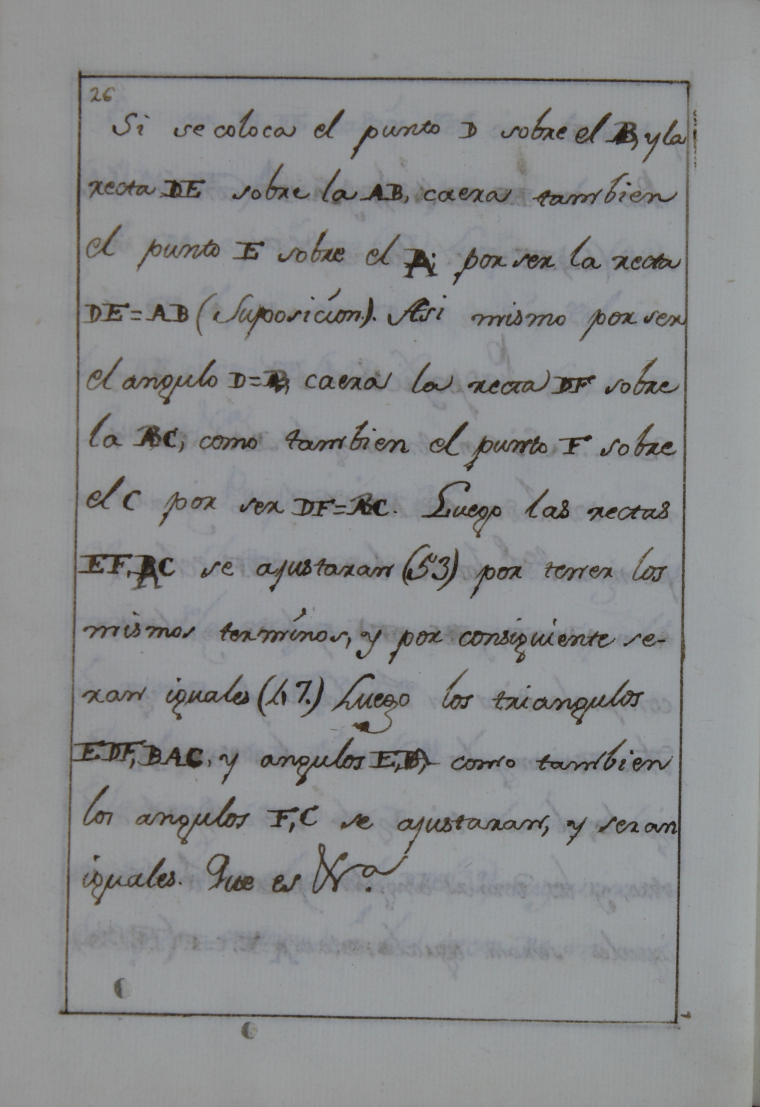 26
Si se coloca el punto D sobre el B, y la
recta DE sobre la AB, caera tambien
el punto E sobre el A; por ser la recta
DE=AB (Suposicion). Asi mismo por ser
el angulo D=B, caera la recta DF sobre
la BC, como tambien el punto F sobre
el C por ser DF=BC. Luego las rectas
EF, AC se ajustaran (53) por tener los
mismos terminos, y por consiguiente se-
ran iguales (47.) Luego los triangulos
EDF, BAC, y angulos E, como tambien
los angulos F, C se ajustaran, y seran
iguales. Que es